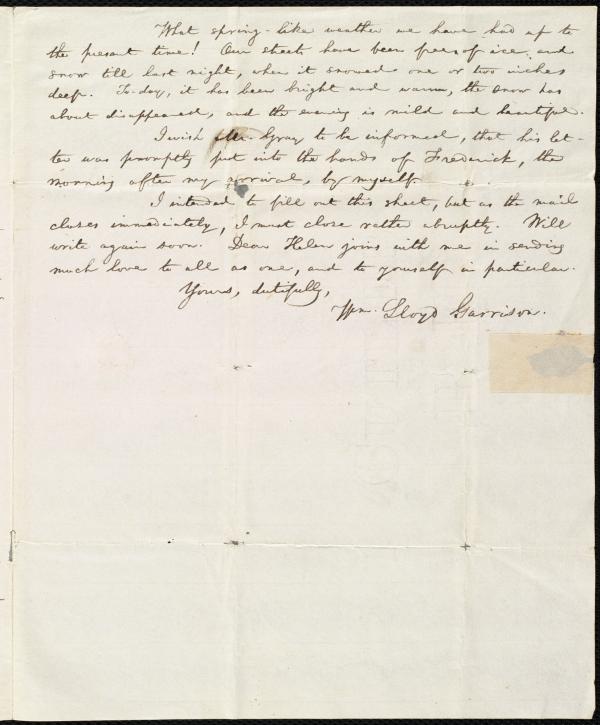 What spring-like weather we have had up to
the present time! Our streets have been free of ice and
snow till last night, when it snowed one or two inches
deep. To-day, it has been bright and warm, the snow has
about disappeared, and the evening is mild and beautiful.
I wish Mr. Gray to be informed, that his let-
ter was promptly put into the hands of Frederick, the
morning after my arrival, by myself.
I intended to fill out this sheet, but as the mail
closes immediately, I must close rather abruptly. Will
write again soon. Dear Helen joins with me in sending
much love to all as one, and to yourself in particular.
Yours, dutifully,
Wm. Lloyd Garrison.